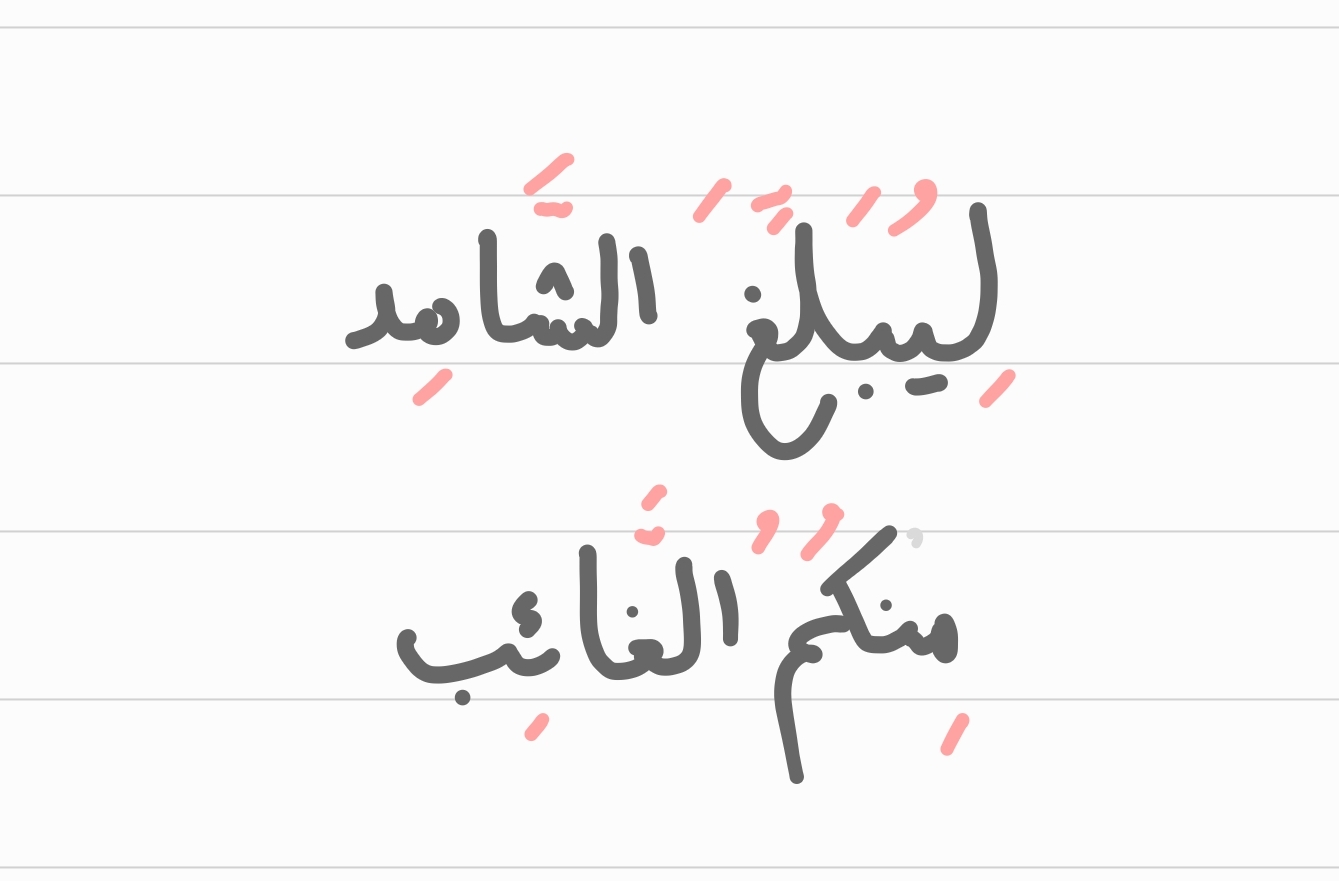 لِيُبَلِّغَ الشَّاهِد
مِنكُمُ الغَّائِب